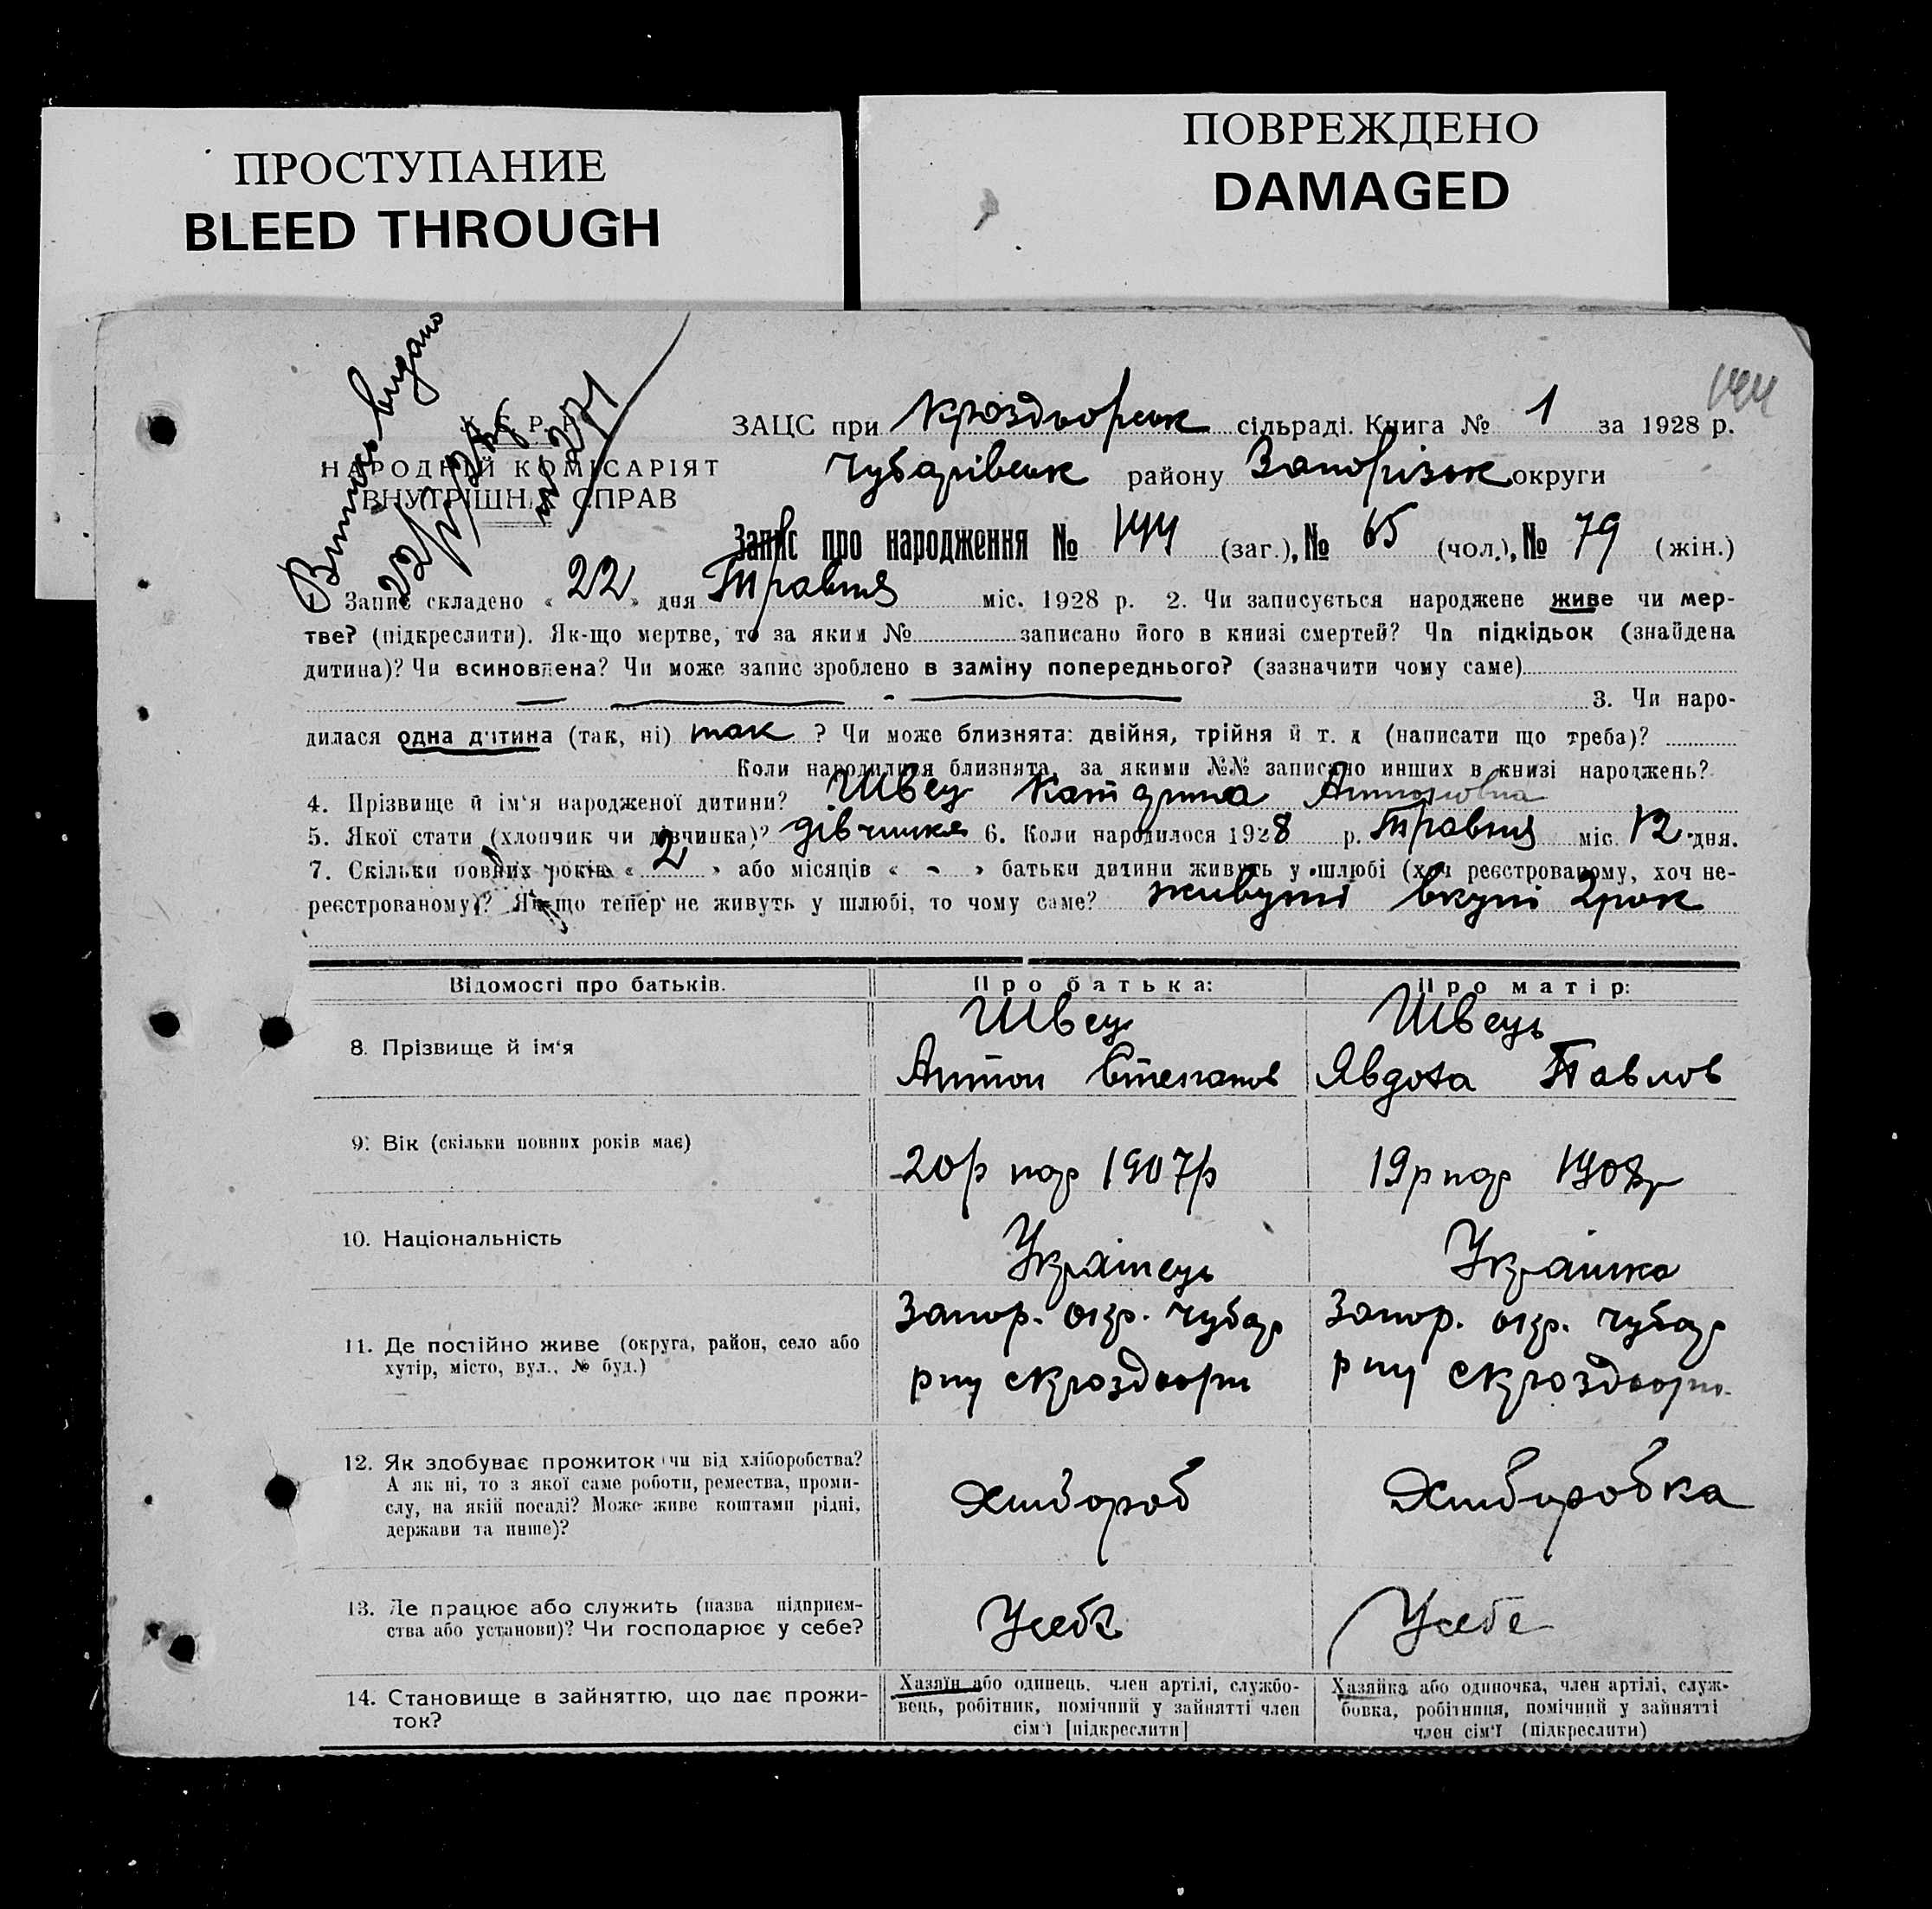 ПРОСТУПАНИЕ
BLEED THROUGH
ПОВРЕЖДЕНО
DAMAGED
144
Витяг видано
22/
У. С. Р. Р.
НАРОДНІЙ КОМІСАРІЯТ
ВНУТРІШНІХ СПРАВ
ЗАЦС при сільраді. Книга № 1 за 1928 р.
Чубарівськ району Запорізьк округи
Запис про народження № 144 (заг.), № 65 (чол.), № 79 (жін.)
1 Запис складено « 22 » дня Травня міс. 1928 р. 2. Чи записується народжене живе чи мер-
тве? (підкреслити). Як-що мертве, то за яким № записано його в книзі смертей? Чи підкідьок (знайдена
дитина)? Чи всиновлена? Чи може запис зроблено в заміну попереднього? (зазначити чому саме)
3. Чи наро-
дилася одна дитина (так, ні) так ? Чи може близнята: двійня, трійня й т. д (написати що треба)?
Коли народилися близнята, за якими №№ записано инших в книзі народжень?
4. Прізвище й ім‘я народженої дитини? Швец Катерина Антоновна
5. Якої стати (хлопчик чи дівчинка)? дівчинка 6. Коли народилося 1928 р. Травня міс. 12 дня.
7. Скільки повних років « 2 » або місяців « - » батьки дитини живуть у шлюбі (хоч реєстрованому, хоч не-
реєстрованому)? Як-що тепер не живуть у шлюбі, то чому саме? живуть вкупі 2 рок
Відомості про батьків.
Про батька:
Про матір:
8. Прізвище й ім‘я
Швец
Антон Степанов
Швець
Явдоха Павлов
9. Вік (скільки повних років має)
20р нар 1907р
19р нар 1908р
10. Національність
Українець
Українка
11. Де постійно живе (округа, район, село або
хутір, місто, вул., № буд.)
Запор. окр. Чубар
рну
Запор. окр. Чубар
рну
12. Як здобуває прожиток (чи від хліборобства?
А як ні, то з якої саме роботи, ремества, проми-
слу, на якій посаді? Може живе коштами рідні,
держави та инше)?
Хлібороб
Хліборобка
13. Де працює або служить (назва підприєм-
ства або установи)? Чи господарює у себе?
У себе
У себе
14. Становище в зайняттю, що дає прожи-
ток?
Хазяїн або одинець, член артілі, службо-
вець, робітник, помічний у зайнятті член
сім‘ї [підкреслити]
Хазяйка або одиночка, член артілі, служ-
бовка, робітниця, помічний у зайнятті
член сім‘ї (підкреслити)